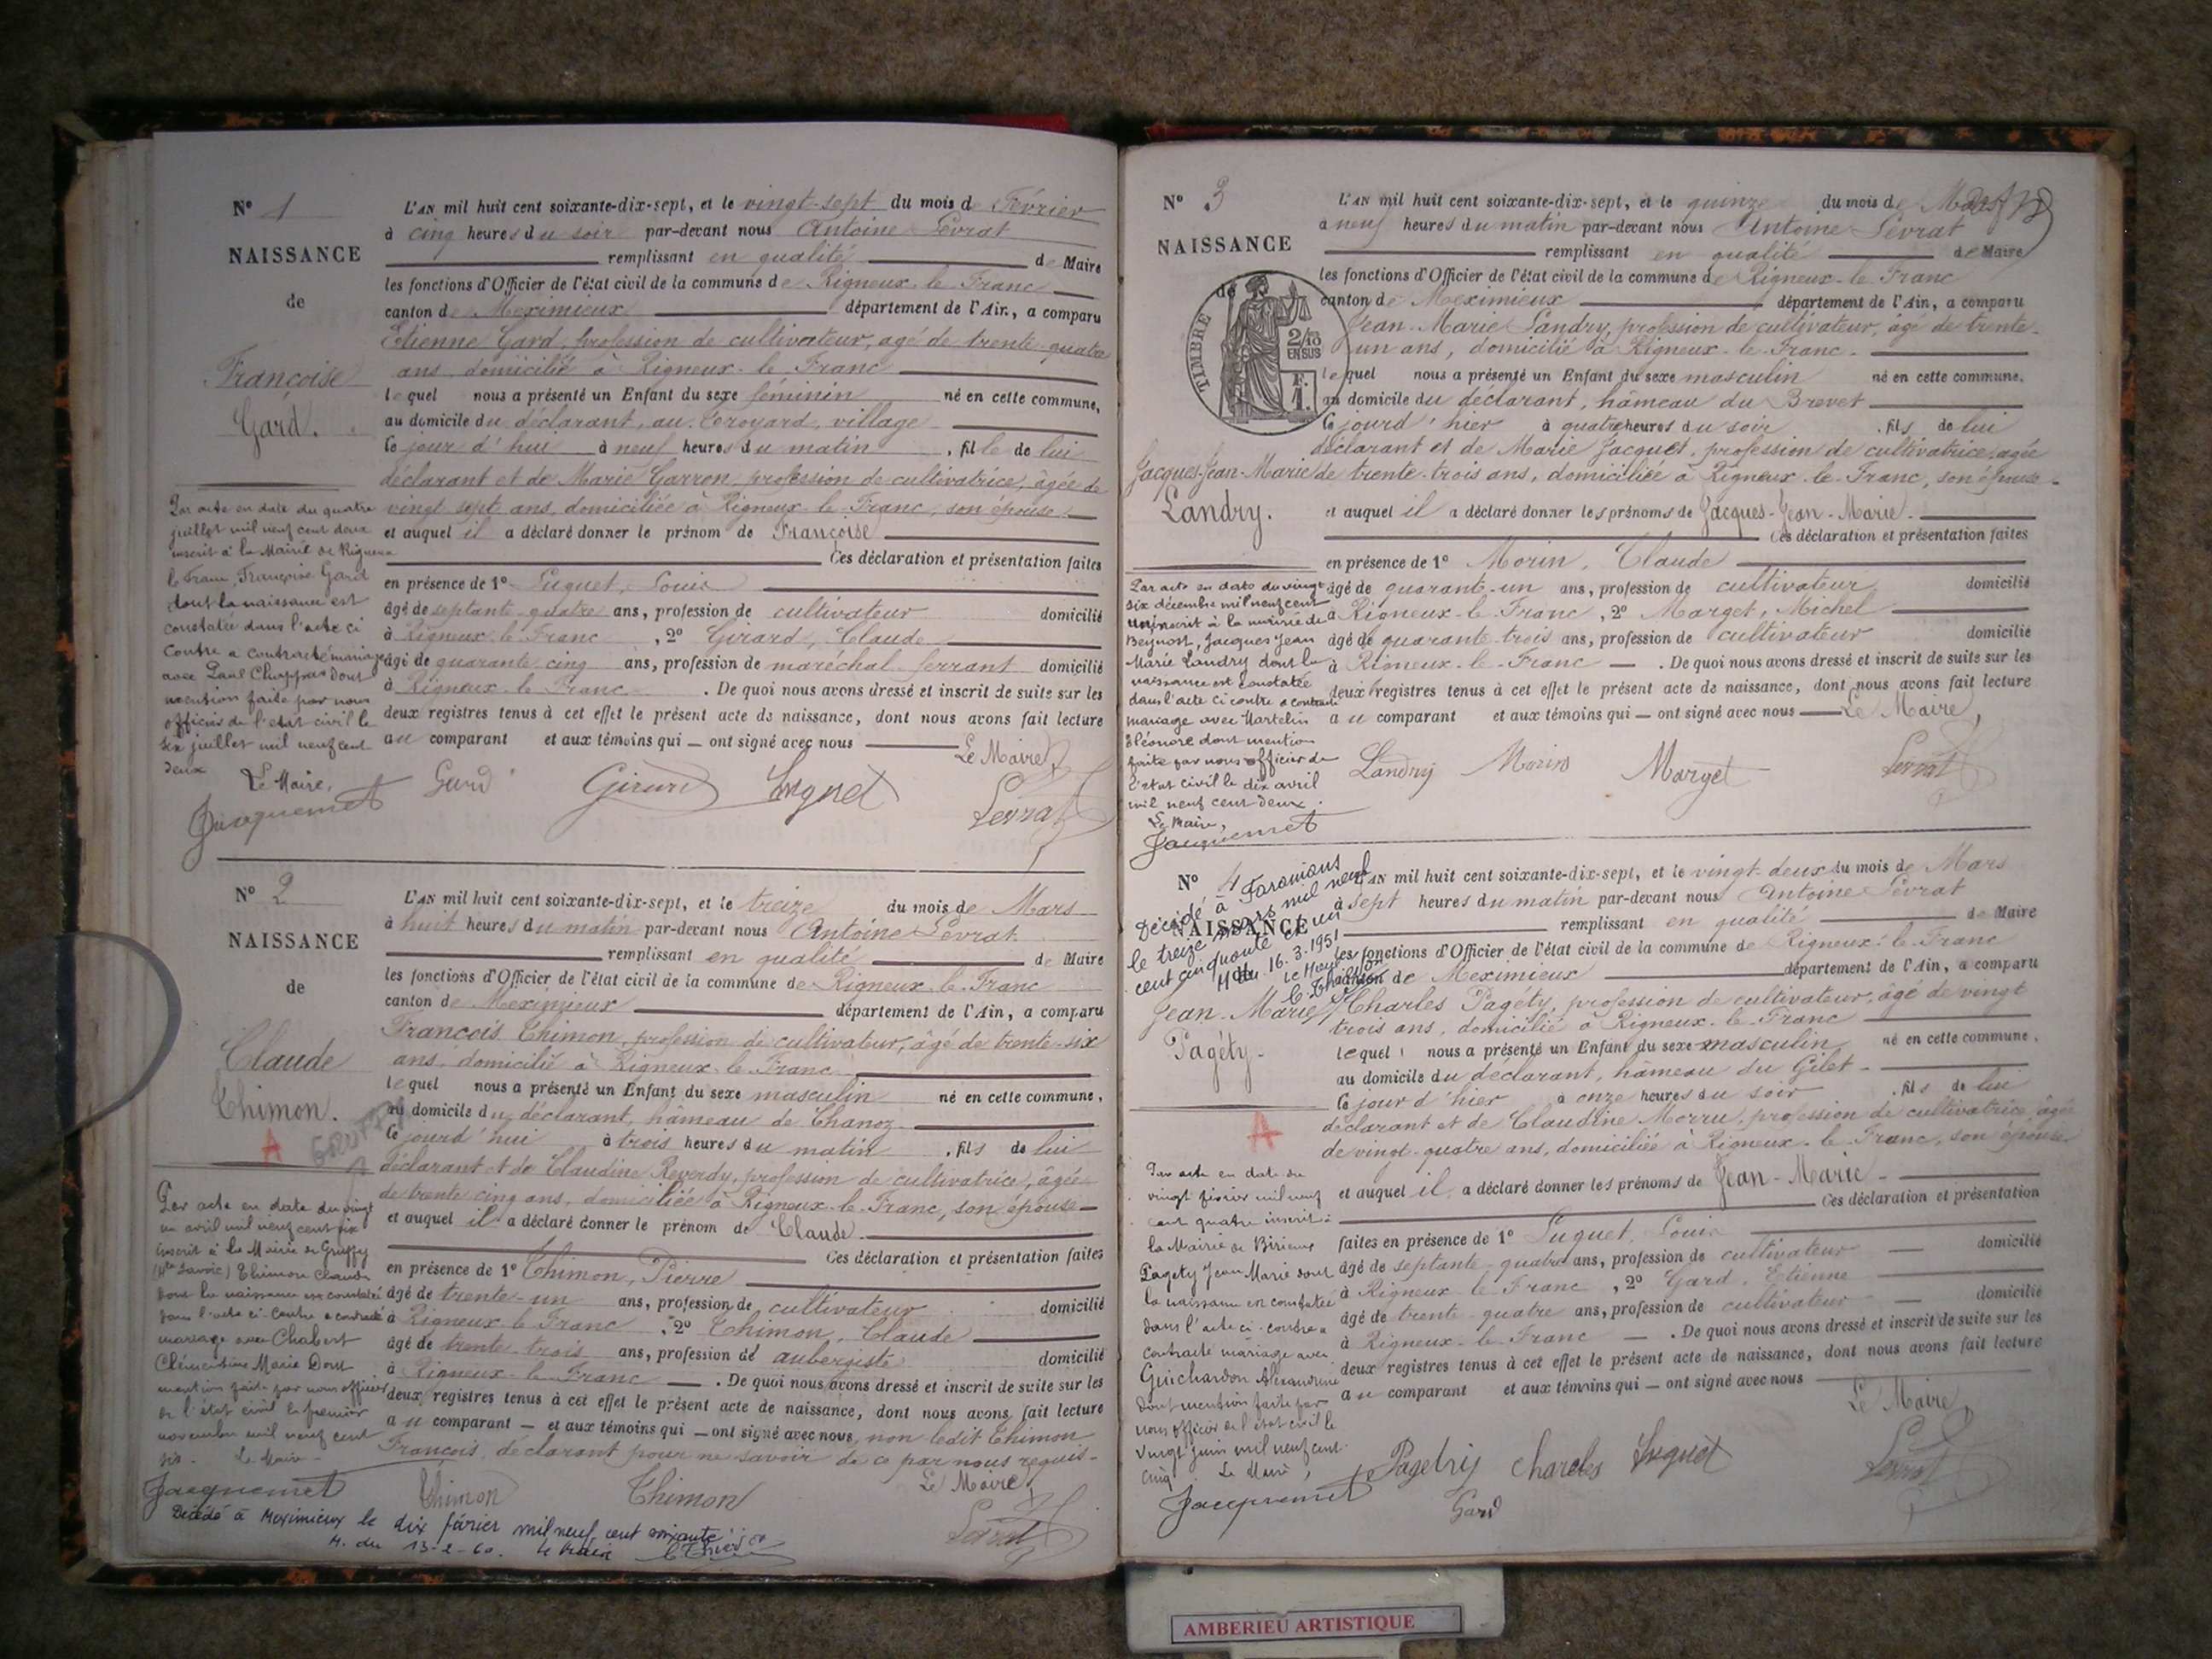 N° 1
NAISSANCE
de
Françoise
Gard.
L'AN mil huit cent soixante-dix-sept, et le vingt-sept du mois de Février
à cinq heures du soir par-devant nous Antoine Levrat
remplissant en qualité de Maire
les fonctions d'Officier de l'état civil de la commune de Rigneux-le-Franc
canton de Meximieux département de l'Ain, a comparu
Etienne Gard, profession de cultivateur, agé de trente-quatre
ans, domicilié à Rigneux-le-Franc
lequel nous a présenté un Enfant du sexe féminin né en cette commune,
au domicile du déclarant, au Croyard, village
Ce jour d'hui à neuf heures du matin, fille de lui
déclarant et de Marie Garron, profession de cultivatrice, âgée de
vingt sept ans, domiciliée à Rigneux-le-Franc, son épouse.
et auquel il a déclaré donner le prénom de Françoise
Ces déclaration et présentation faites
en présence de 1° Luquet, Louis
âgé de septante-quatre ans, profession de cultivateur domicilié
à Rigneux-le-Franc, 2° Girard, Claude
âgé de quarante cinq ans, profession de maréchal-ferrant domicilié
à Rigneux-le-Franc. De quoi nous avons dressé et inscrit de suite sur les
deux registres tenus à cet effet le présent acte de naissance, dont nous avons fait lecture
au comparant et aux témoins qui — ont signé avec nous
Le Maire
Gard Girard Luquet Levrat
Par acte en date du quatre
juillet mil neuf cent deux
inscrit à la Mairie de Rigneux
le Franc, Françoise Gard
dont la naissance est
constatée dans l'acte ci
contre a contracté mariage
avec Paul Chappas dont
mention faite par nous
officier de l'état civil le
six juillet mil neuf cent
deux
Le Maire,
Jacquemet
N° 2
NAISSANCE
de
Claude
Thimon.
A
L'AN mil huit cent soixante-dix-sept, et le treize du mois de Mars
à huit heures du matin par-devant nous Antoine Levrat
remplissant en qualité de Maire
les fonctions d'Officier de l'état civil de la commune de Rigneux-le-Franc
canton de Meximieux département de l'Ain, a comparu
François Thimon, profession de cultivateur, âgé de trente-six
ans, domicilié à Rigneux-le-Franc
lequel nous a présenté un Enfant du sexe masculin né en cette commune,
au domicile du déclarant, hâmeau de Chanoz
Ce jourd'hui à trois heures du matin, fils de lui
déclarant et de Claudine Reverdy, profession de cultivatrice, âgée
de trente cinq ans, domiciliée à Rigneux-le-Franc, son épouse
et auquel il a déclaré donner le prénom de Claude.
Ces déclaration et présentation faites
en présence de 1° Thimon, Pierre
âgé de trente-un ans, profession de cultivateur domicilié
à Rigneux-le-Franc, 2° Thimon, Claude
âgé de trente trois ans, profession de aubergiste domicilié
à Rigneux-le-Franc — . De quoi nous avons dressé et inscrit de suite sur les
deux registres tenus à cet effet le présent acte de naissance, dont nous avons fait lecture
au comparant — et aux témoins qui — ont signé avec nous, non ledit Thimon
François, déclarant pour ne savoir de ce par nous requis.
Le Maire,
Thimon Thimon Levrat
Par acte en date du vingt
un avril mil neuf cent six
inscrit à la Mairie de Gruffy
(Hte Savoie) Thimon Claude
dont la naissance est constatée
dans l'acte ci-contre a contracté
mariage avec Chabert
Clémentine Marie Dont
mention faite par nous officier
de l'état civil le premier
novembre mil neuf cent
six. Le Maire
Jacquemet
Décédé à Meximieux le dix février mil neuf cent soixante
M. du 13-2-60. Le Maire
N° 3
NAISSANCE
de
TIMBRE
2/10
EN SUS
F.
1.
Jacques-Jean-Marie
Landry.
L'AN mil huit cent soixante-dix-sept, et le quinze du mois de Mars
à neuf heures du matin par-devant nous Antoine Levrat
remplissant en qualité de Maire
les fonctions d'Officier de l'état civil de la commune de Rigneux-le-Franc
canton de Meximieux département de l'Ain, a comparu
Jean-Marie Landry, profession de cultivateur, âgé de trente-
un ans, domicilié à Rigneux-le-Franc.
lequel nous a présenté un Enfant du sexe masculin né en cette commune.
au domicile du déclarant, hâmeau du Brevet
Ce jourd'hier à quatre heures du soir, fils de lui
déclarant et de Marie Jacquet, profession de cultivatrice, agée
de trente-trois ans, domiciliée à Rigneux-le-Franc, son épouse.
et auquel il a déclaré donner les prénoms de Jacques-Jean-Marie.
Ces déclaration et présentation faites
en présence de 1° Morin, Claude
âgé de quarante-un ans, profession de cultivateur domicilié
à Rigneux-le-Franc, 2° Marget, Michel
âgé de quarante-trois ans, profession de cultivateur domicilié
à Rigneux-le-Franc — . De quoi nous avons dressé et inscrit de suite sur les
deux registres tenus à cet effet le présent acte de naissance, dont nous avons fait lecture
au comparant et aux témoins qui — ont signé avec nous — Le Maire,
Landry Morin Marget Levrat
Par acte en date du vingt
six décembre mil neuf cent
un inscrit à la mairie de
Beynost, Jacques Jean
Marie Landry dont la
naissance est constatée
dans l'acte ci contre a contracté
mariage avec Martelin
Eléonore dont mention
faite par nous officier de
l'état civil le dix avril
mil neuf cent deux.
Le Maire,
Jacquemet
N° 4
NAISSANCE
Décédé à Faramans
le treize mars mil neuf
cent cinquante et un
M du 16.3.1951
Jean-Marie
Pagéty.
A
L'AN mil huit cent soixante-dix-sept, et le vingt-deux du mois de Mars
à sept heures du matin par-devant nous Antoine Levrat
remplissant en qualité de Maire
les fonctions d'Officier de l'état civil de la commune de Rigneux-le-Franc
canton de Meximieux département de l'Ain, a comparu
Charles Pagéty, profession de cultivateur, âgé de vingt
trois ans, domicilié à Rigneux-le-Franc
lequel nous a présenté un Enfant du sexe masculin né en cette commune,
au domicile du déclarant, hâmeau du Gilet
Ce jour d'hier à onze heures du soir, fils de lui
déclarant et de Claudine Morru, profession de cultivatrice, âgée
de vingt-quatre ans, domiciliée à Rigneux-le-Franc, son épouse
et auquel il a déclaré donner les prénoms de Jean-Marie
Ces déclaration et présentation
faites en présence de 1° Luquet, Louis
âgé de septante-quatre ans, profession de cultivateur — domicilié
à Rigneux-le-Franc, 2° Gard, Etienne
âgé de trente-quatre ans, profession de cultivateur — domicilié
à Rigneux-le-Franc — . De quoi nous avons dressé et inscrit de suite sur les
deux registres tenus à cet effet le présent acte de naissance, dont nous avons fait lecture
au comparant et aux témoins qui — ont signé avec nous
Le Maire,
Pagetry Charles Luquet Levrat
Gard
Par acte en date du
vingt février mil neuf
cent quatre inscrit à
la Mairie de Birieux
Pagety Jean Marie dont
la naissance est constatée
dans l'acte ci-contre a
contracté mariage avec
Guichardon Alexandrine
Dont mention faite par
nous officier de l'état civil le
vingt juin mil neuf cent
cinq. Le Maire,
Jacquemet
AMBERIEU ARTISTIQUE